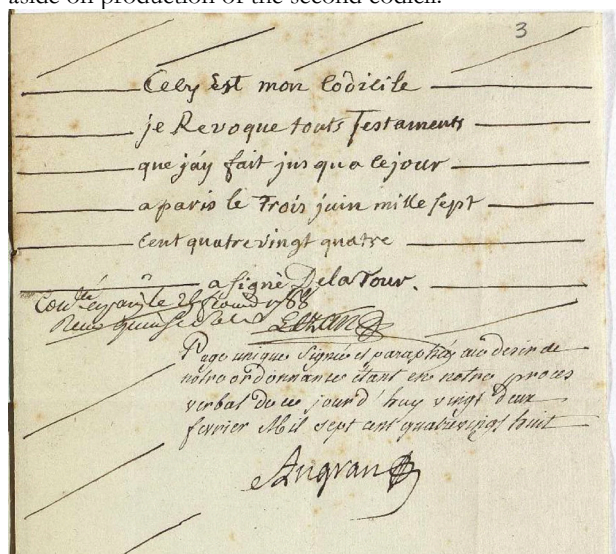 aside on production of the second codicil.
3
Cecy Est mon Codicile
je Revoque touts Testaments
que jáy fait jusqua cejour
aparis le Trois juin mille sept
Cent quatre vingt quatre
a Signé Delatour.
le 26 1788
Lezan
Page unique Signée et paraphée au desir de
notre ordonnance étant en notre proces
verbal de ce jourd'huy vingt deux
fevrier Mil sept cent quatrevingt huit
Angran